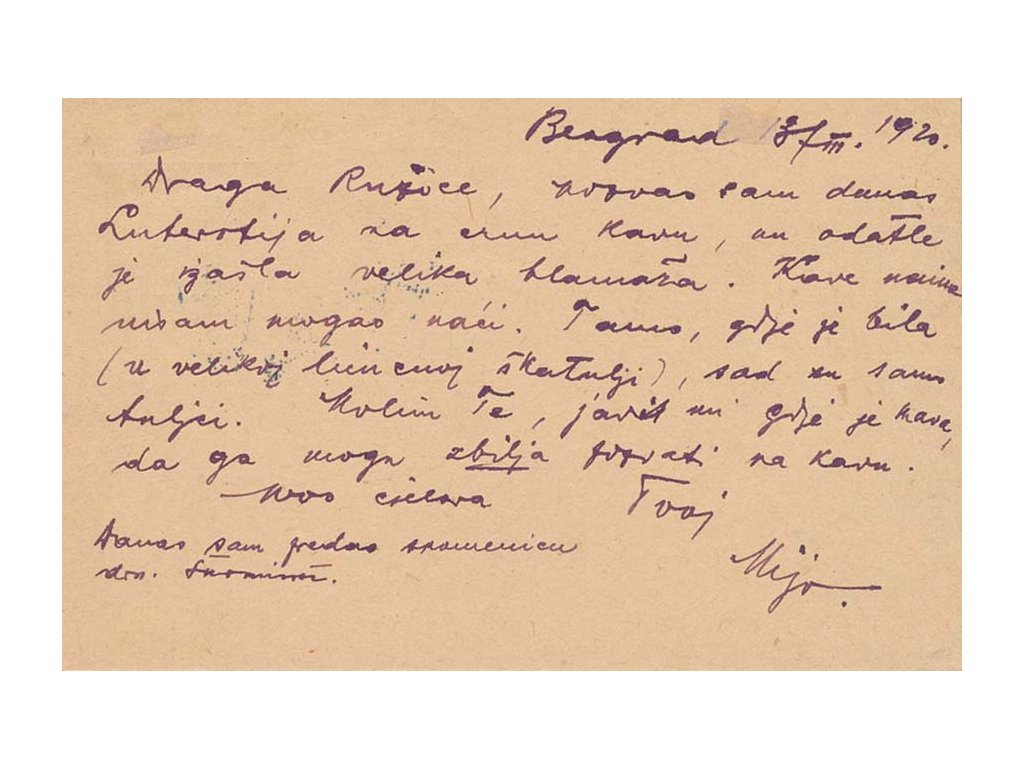 Beograd 13/III. 1920.
Draga Ružice, pozvao sam danas
Luterotija na crnu kavu, no odatle
je izašla velika blamaža. Kave naime
nisam mogao naći. Tamo, gdje je bila
(u velikoj škatulji), sad su samo
tuljci. Molim Te, javi mi gdje je kava,
da ga mogu zbilja pozvati na kavu.
Mnogo cjelova Tvoj
Mijo.
Danas sam predao spomenicu
dru.